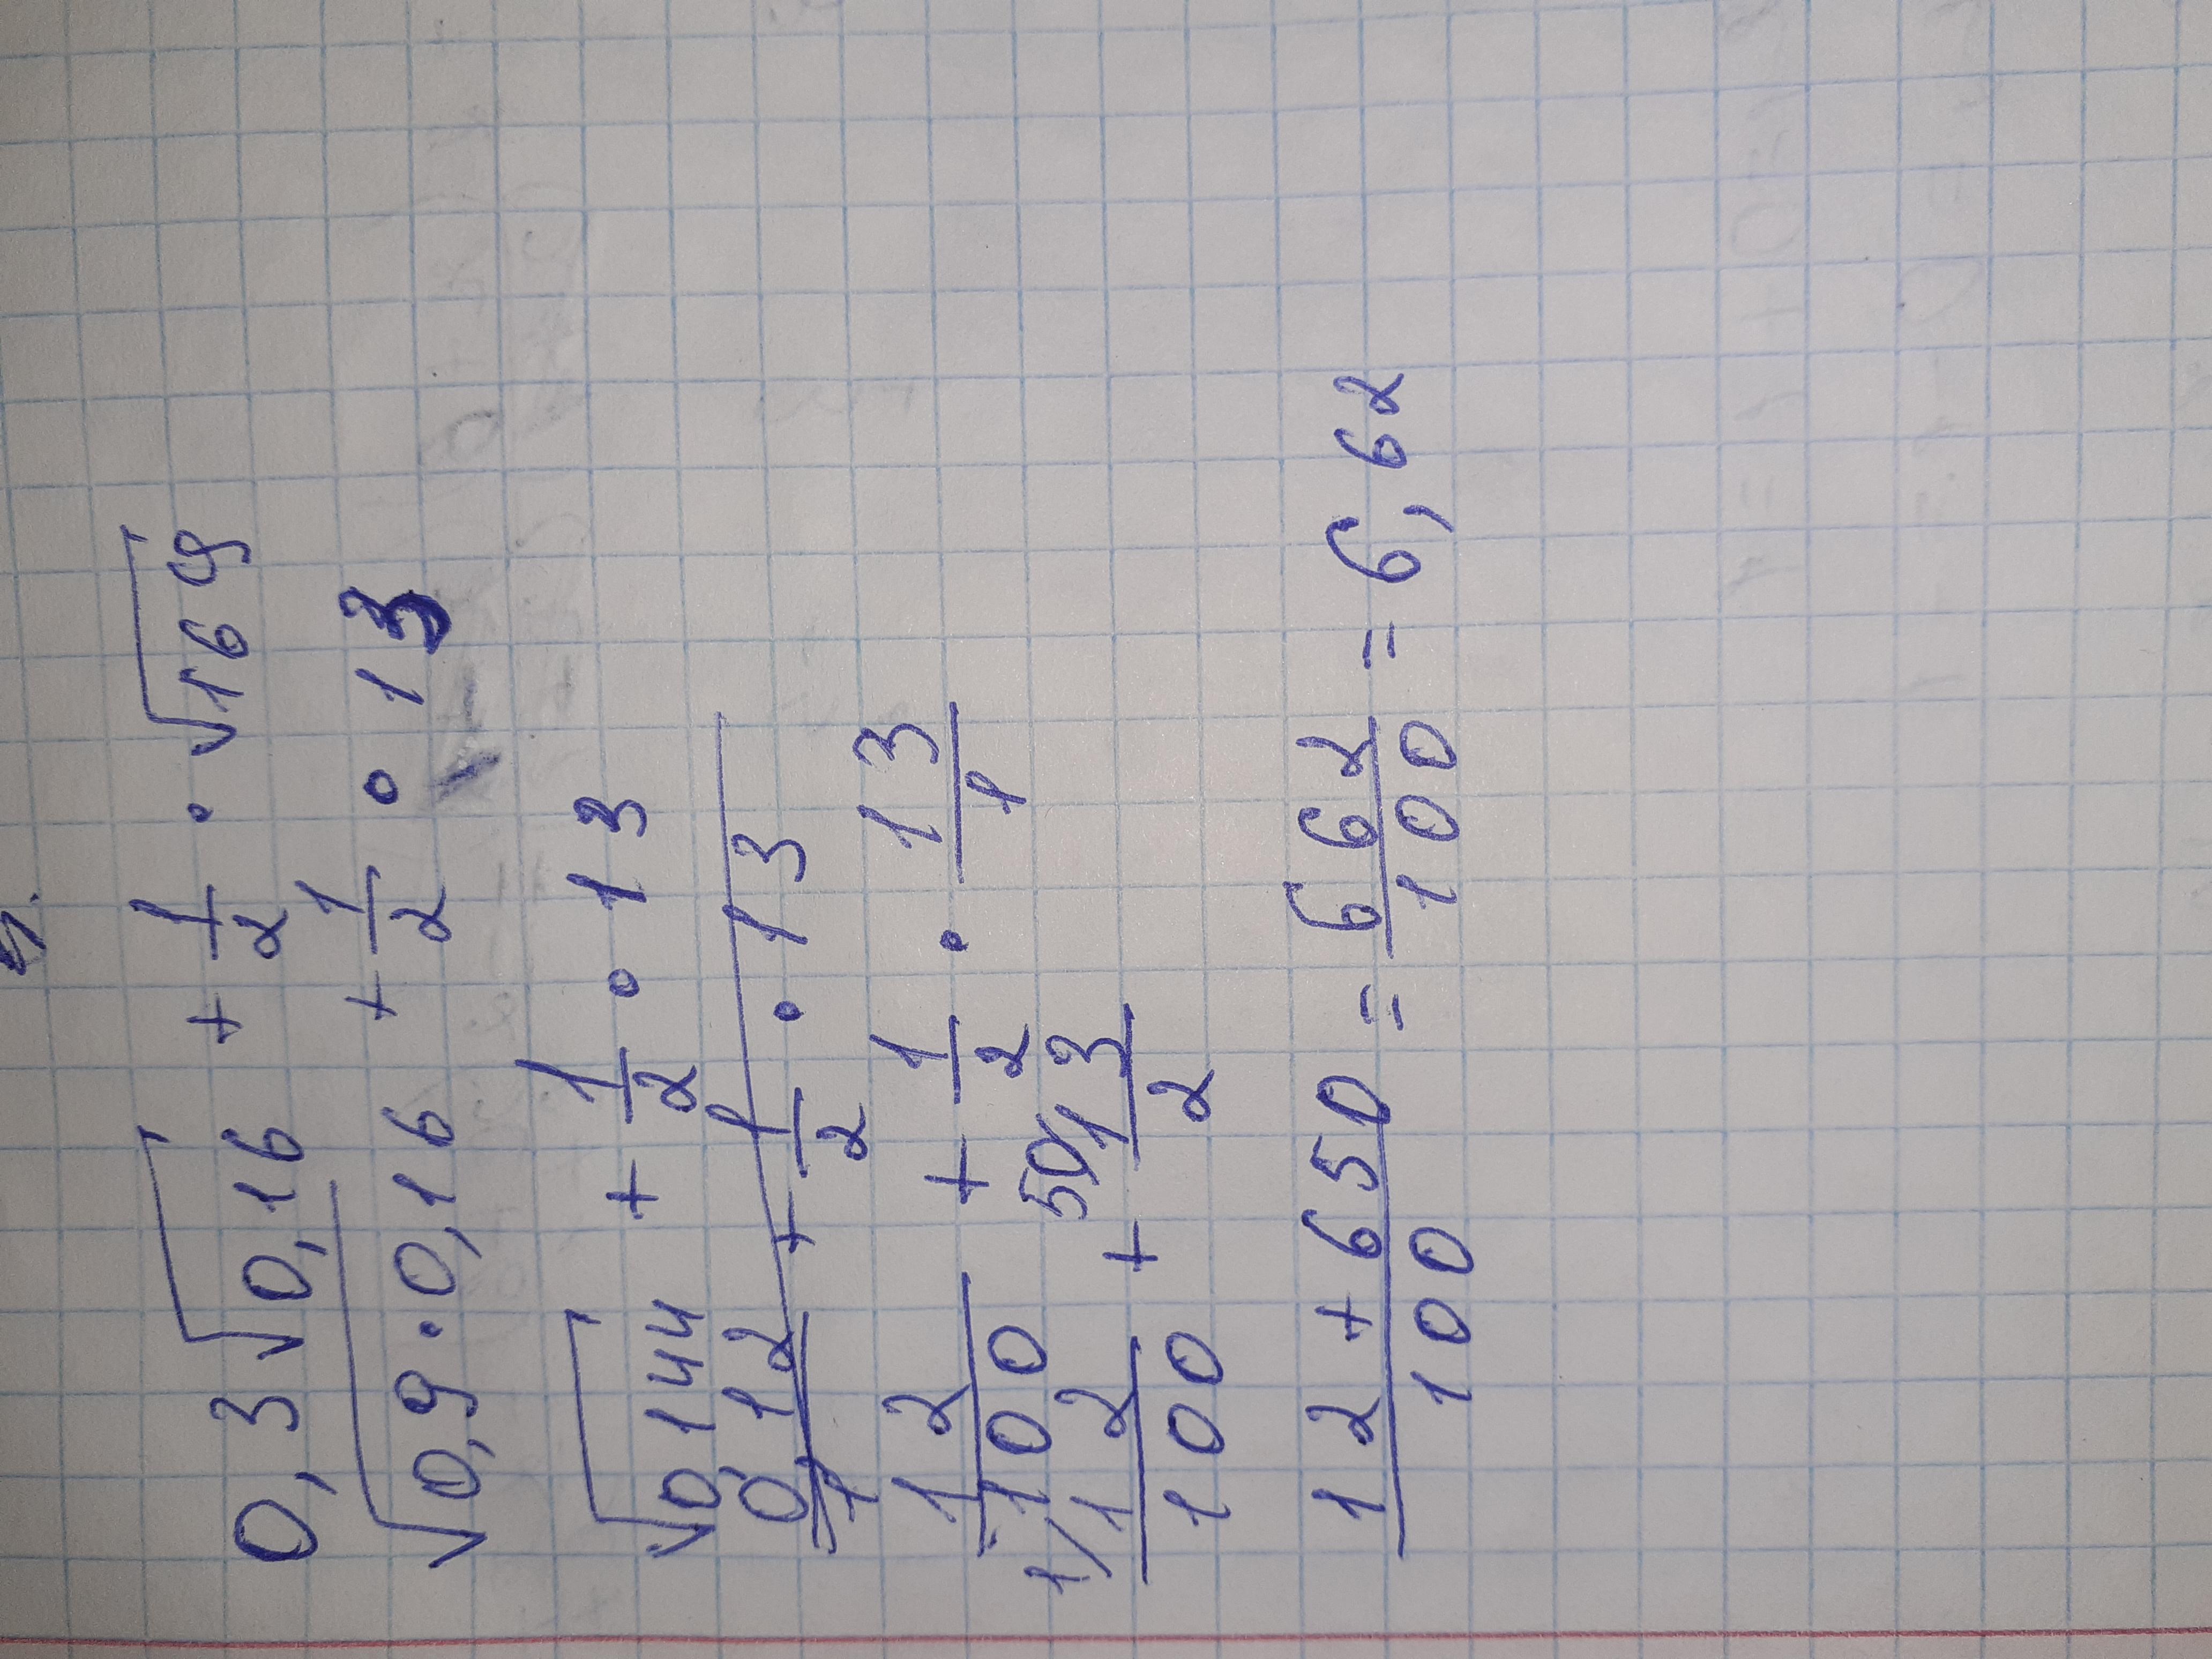 0,3√0,16 + 1/2 · √169
√0,9·0,16 + 1/2 · 13
√0,144 + 1/2 · 13
0,12 + 1/2 · 13
12/100 + 1/2 · 13/1
1/ 12/100 + 50/ 13/2
12+650/100 = 662/100 = 6,62